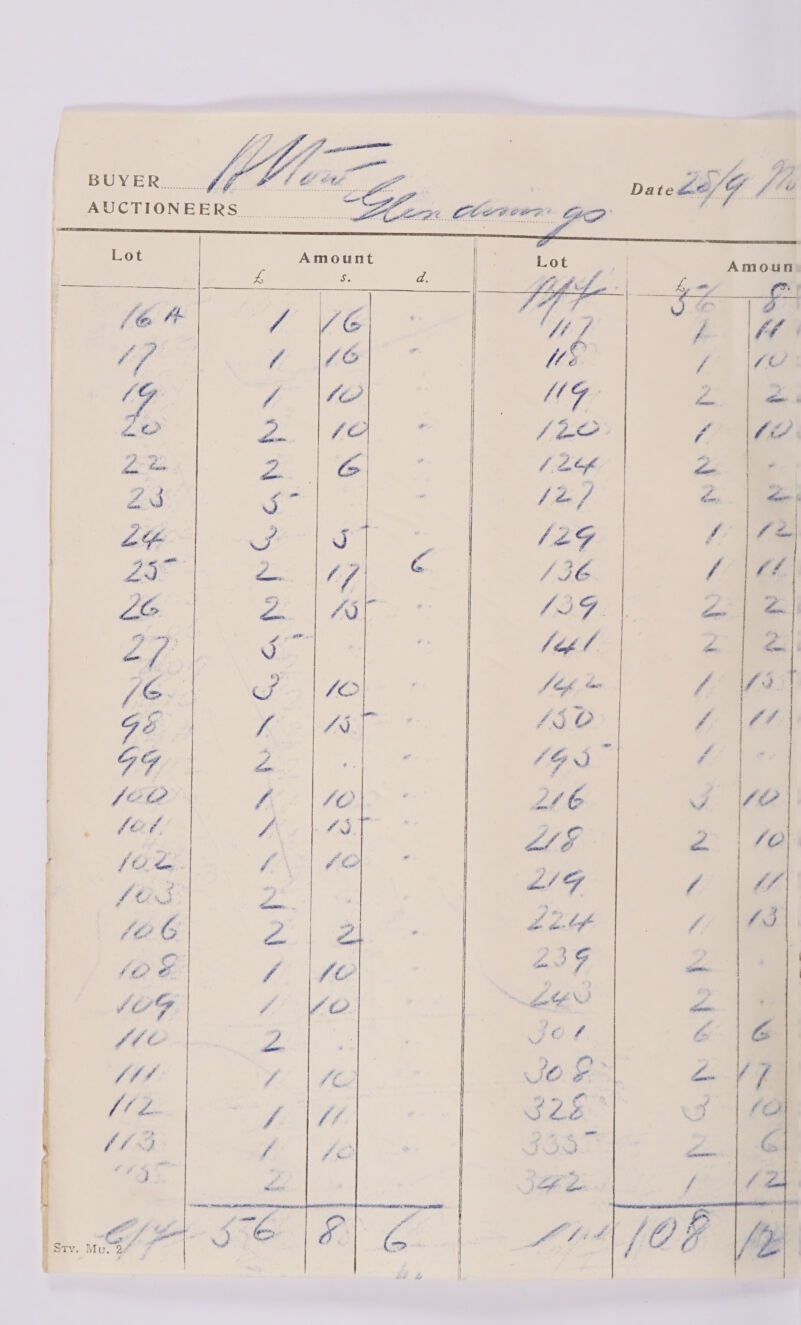 BUYER
AUCTIONEERS Glendinings
Date 28/9
Lot Amount
£ s. d.
16A 1 16 "
17 1 16 "
19 1 10
20 2 10 "
22 2 6 "
23 5 - "
24 3 5 "
25 2 17 6
26 2 15 "
27 5 - "
76 3 10 "
98 1 15 "
99 2 " "
100 1 10 "
101 1 15 "
102 1 10 "
103 2 "
106 2 2 "
108 1 10
109 1 10 "
110 2 "
111 1 10 "
112 1 11 "
113 1 10 "
115 2
C/F 56 8 6
STY. MU. 2
Lot Amoun
£ s.
B/F 56 8
117 1 11
118 1 10
119 2 2
120 1 10
124 2 "
127 2 2
129 1 12
136 1 11
139 2 2
141 2 2
142 1 15
150 1 11
195 1 "
216 3 10
218 2 10
219 1 11
224 1 13
239 2 "
243 2 "
301 6 6
308 2 17
328 3 10
335 2 6
342 1 12
108 12